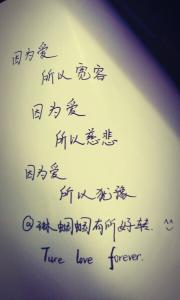 因为爱
所以宽容
因为爱
所以慈悲
因为爱
所以犹豫
@琳烟烟有所好转. ^^
Ture love forever.